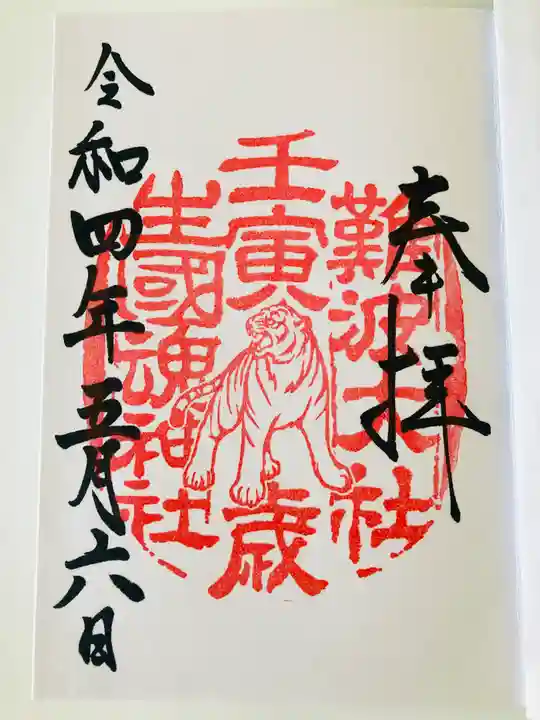 奉拝
難波大社
壬寅歳
生國魂神社
令和四年五月六日